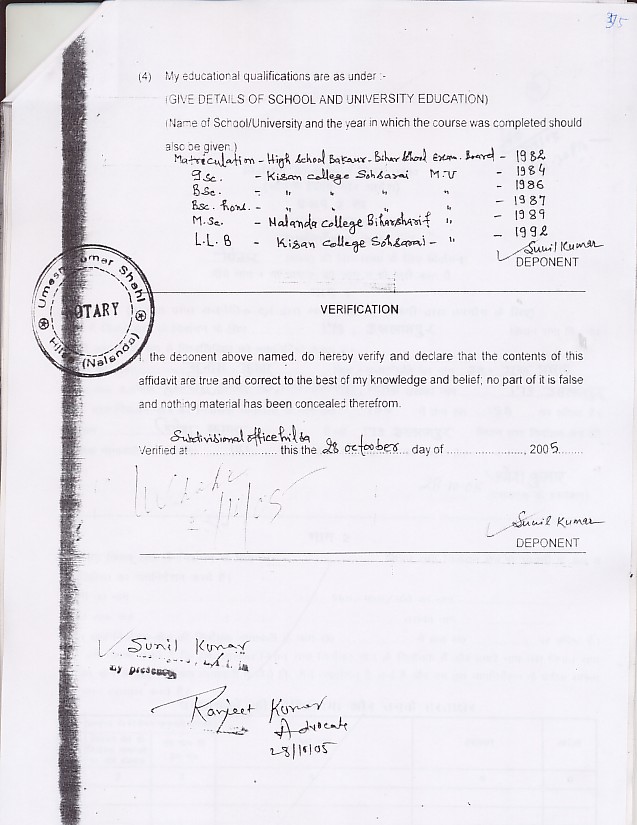 375
(4) My educational qualifications are as under :-
(GIVE DETAILS OF SCHOOL AND UNIVERSITY EDUCATION)
(Name of School/University and the year in which the course was completed should
also be given.)
Matriculation - High School Bakaur - Bihar School Exam. Board - 1982
I.Sc. - Kisan College Sohsarai M.U - 1984
B.Sc. - " " " " - 1986
B.Sc. hons. - " " " " - 1987
M.Sc. - Nalanda College Biharsharif " - 1989
L.L.B - Kisan College Sohsarai - " - 1992
Sunil Kumar
DEPONENT
Umesh Kumar Shahi
NOTARY
Hilsa (Nalanda)
VERIFICATION
I, the deponent above named, do hereby verify and declare that the contents of this
affidavit are true and correct to the best of my knowledge and belief; no part of it is false
and nothing material has been concealed therefrom.
Verified at Subdivisional office hilsa this the 28 october day of ........................, 2005.......
Sunil Kumar
DEPONENT
Sunil Kumar
my presence
Ranjeet Kumar
Advocate
28/10/05